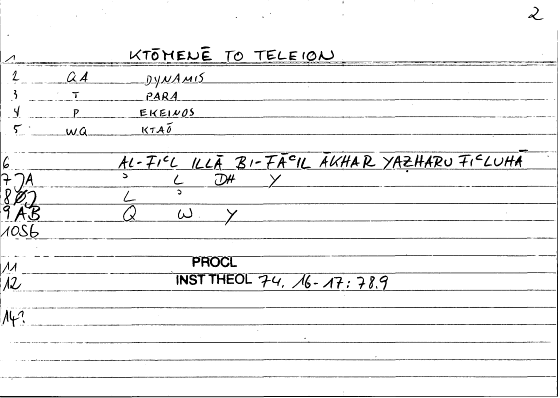 2
1 KTŌMENĒ TO TELEION
2 QA DYNAMIS
3 T PARA
4 P EKEINOS
5 WQ KTAŌ
6 AL-FIᶜL ILLĀ BI-FĀᶜIL ĀKHAR YAẒHARU FIᶜLUHĀ
7 JA ʾ L DH Y
8 L ʾ
9 AB Q W Y
10 S6
11 PROCL
12 INST THEOL 74. 16-17: 78.9
14?